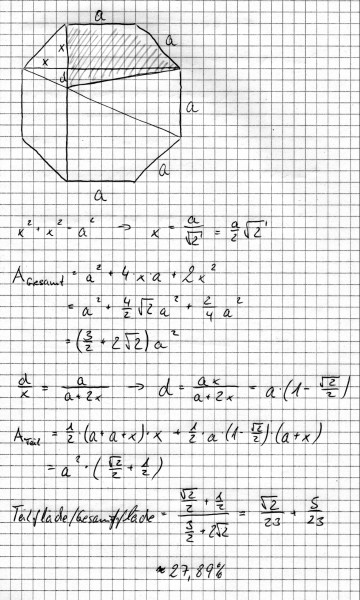 a
x
a
x
d
a
a
a
x² + x² = a² → x = a/√2 = a/2 √2
A_Gesamt = a² + 4xa + 2x²
= a² + 4/2 √2 a² + 2/4 a²
= (3/2 + 2√2) a²
d/x = a/(a+2x) → d = ax/(a+2x) = a·(1 - √2/2)
A_Teil = 1/2·(a+a+x)·x + 1/2·a·(1-√2/2)(a+x)
= a²·(√2/2 + 1/2)
Teilfläche/Gesamtfläche = (√2/2 + 1/2)/(3/2 + 2√2) = √2/23 + 5/23
≈ 27,89%